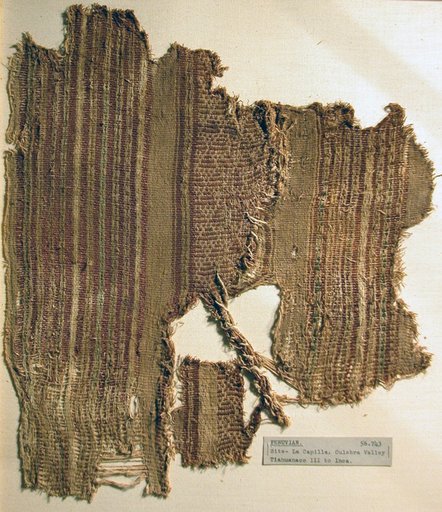 PERUVIAN. 56.743
Site- La Capilla. Culebra Valley
Tiahuanaco III to Inca.